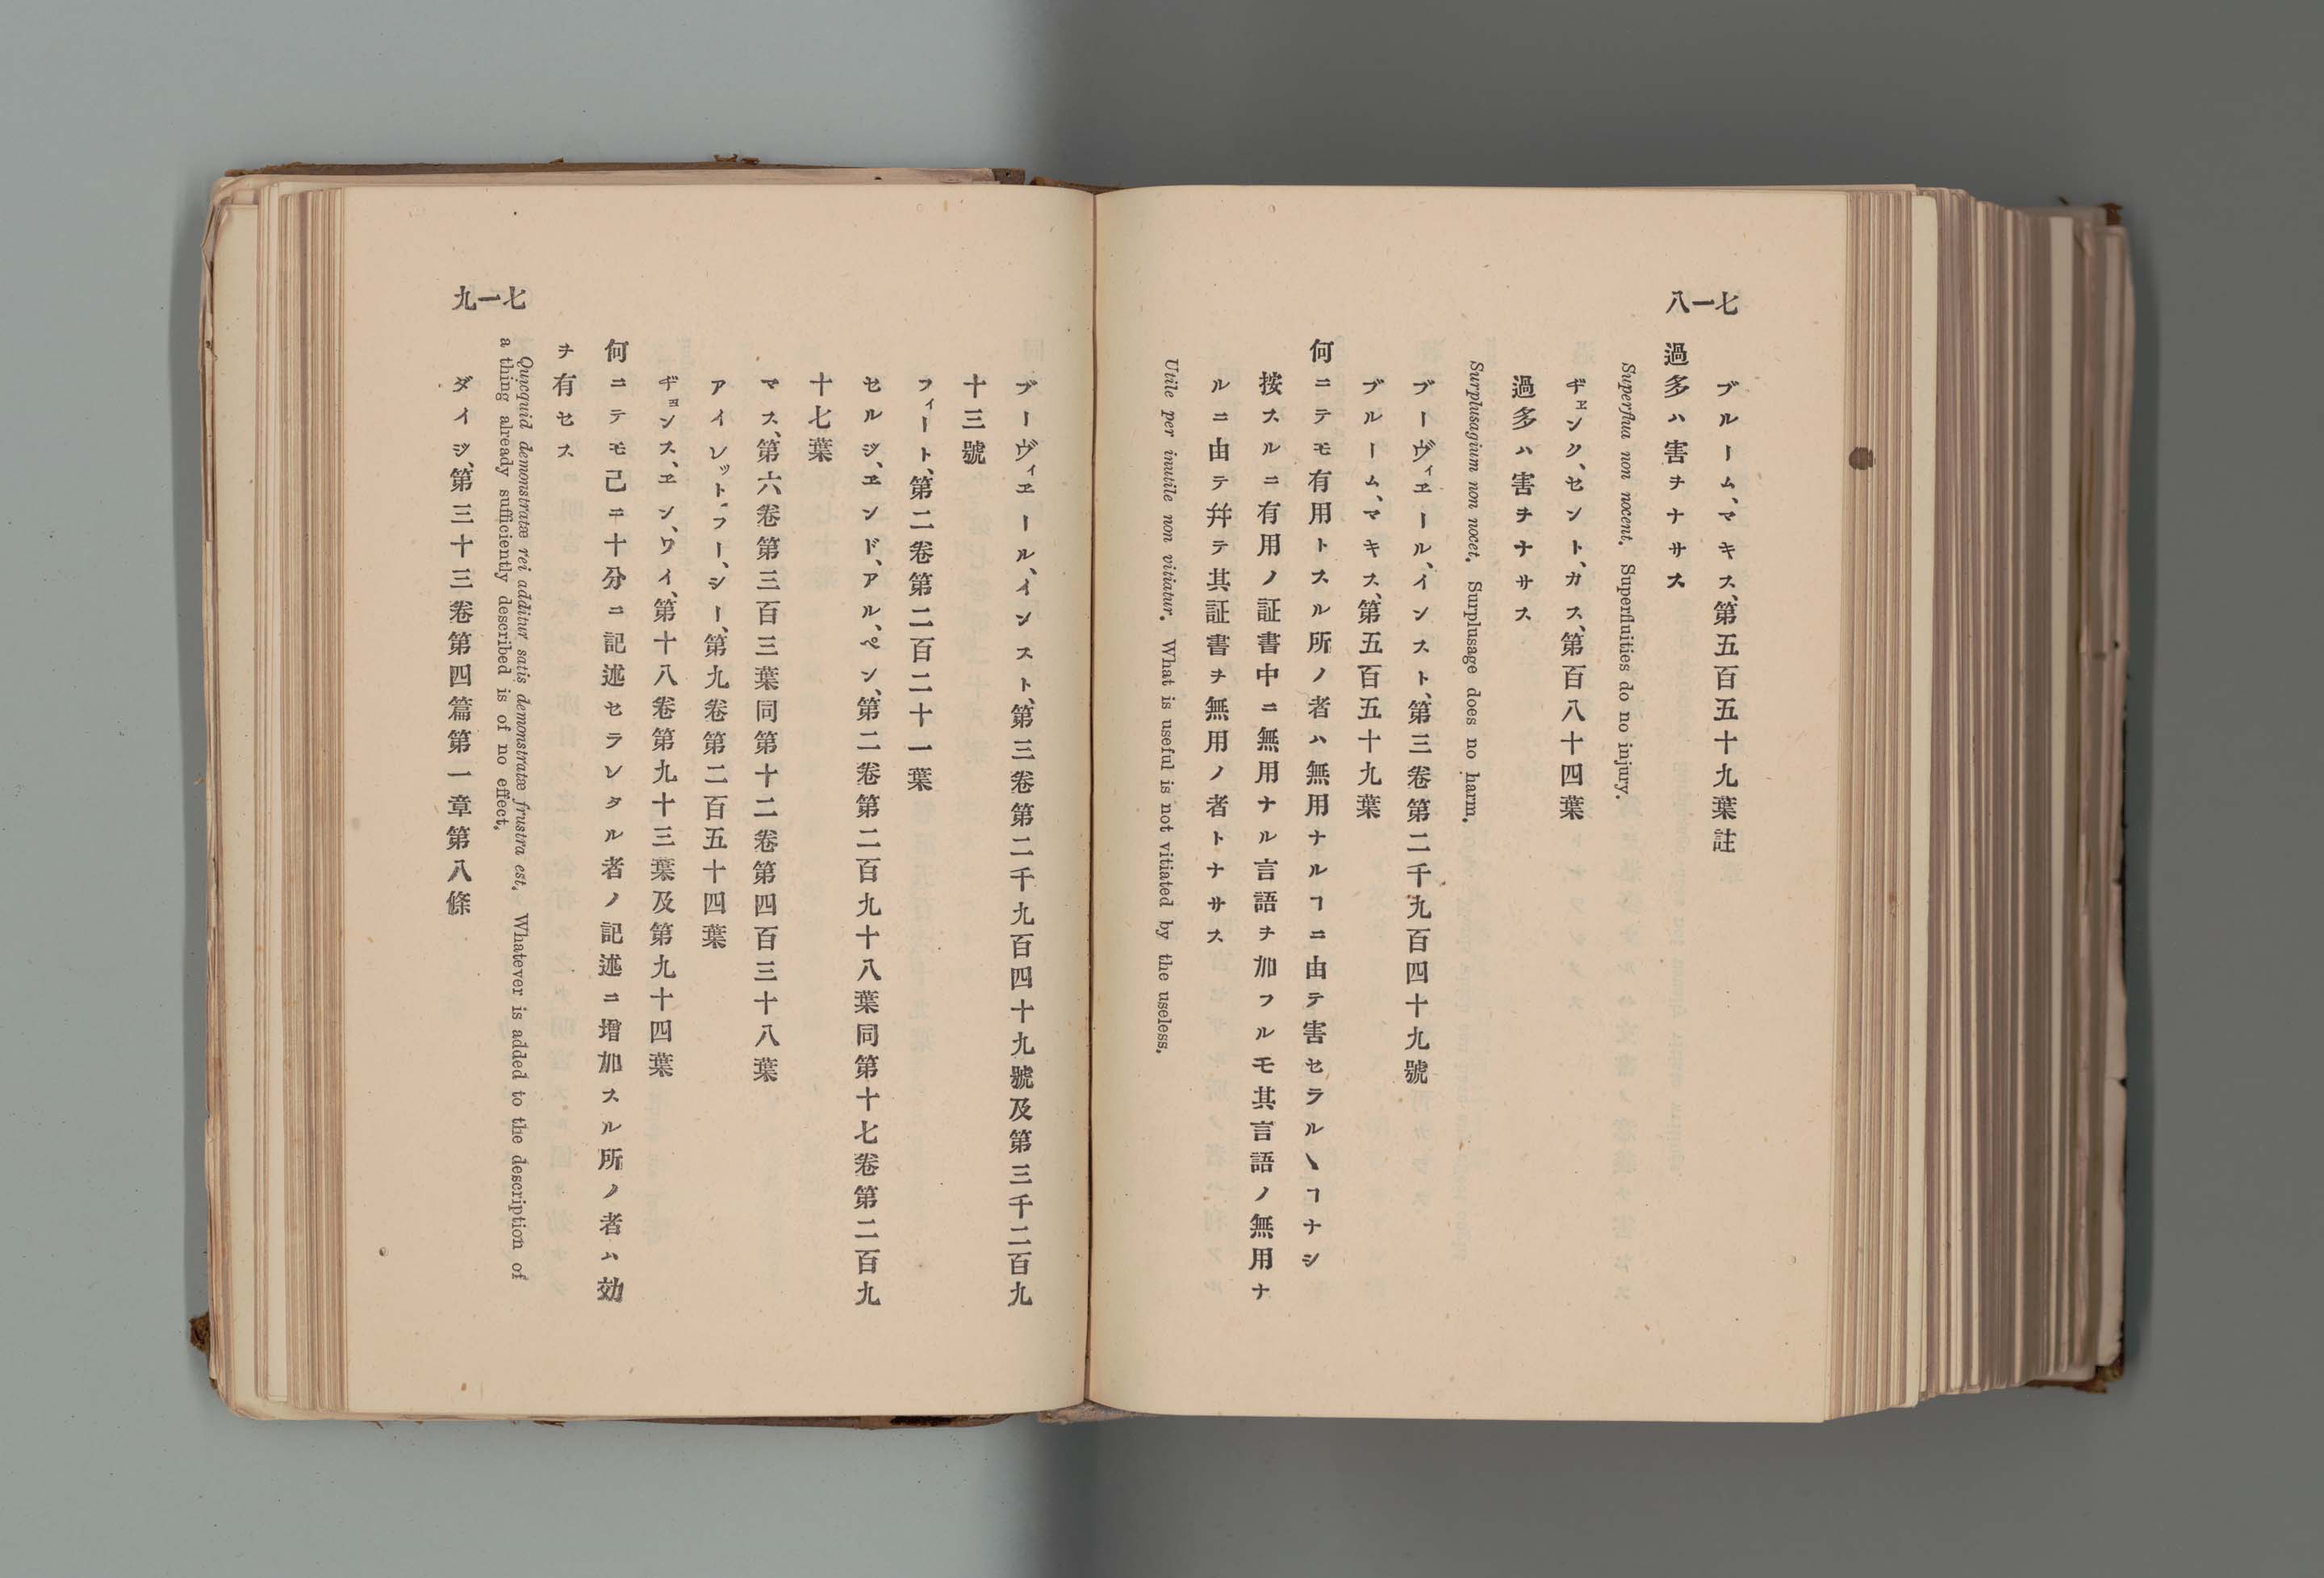 七一八
ブルーム、マキス、第五百五十九葉註
過多ハ害ヲナサス
Superflua non nocent. Superfluities do no injury.
ヂェンク、セント、カス、第百八十四葉
過多ハ害ヲナサス
Surplusagium non nocet. Surplusage does no harm.
ブーヴィヱール、インスト、第三卷第二千九百四十九號
ブルーム、マキス、第五百五十九葉
何ニテモ有用トスル所ノ者ハ無用ナルヿニ由テ害セラルヽヿナシ
按スルニ有用ノ証書中ニ無用ナル言語ヲ加フルモ其言語ノ無用ナ
ルニ由テ幷テ其証書ヲ無用ノ者トナサス
Utile per inutile non vitiatur. What is useful is not vitiated by the useless.
七一九
ブーヴィヱール、インスト、第三卷第二千九百四十九號及第三千二百九
十三號
フィート、第二卷第二百二十一葉
セルジ、ヱンド、アル、ペン、第二卷第二百九十八葉同第十七卷第二百九
十七葉
マス、第六卷第三百三葉同第十二卷第四百三十八葉
アイレット゛フー、シー、第九卷第二百五十四葉
ヂョンス、ヱン、ワイ、第十八卷第九十三葉及第九十四葉
何ニテモ己ニ十分ニ記述セラレタル者ノ記述ニ增加スル所ノ者ハ効
ヲ有セス
Quicquid demonstratæ rei additur satis demonstratæ frustra est. Whatever is added to the description of
a thing already sufficiently described is of no effect.
ダイジ、第三十三卷第四篇第一章第八條